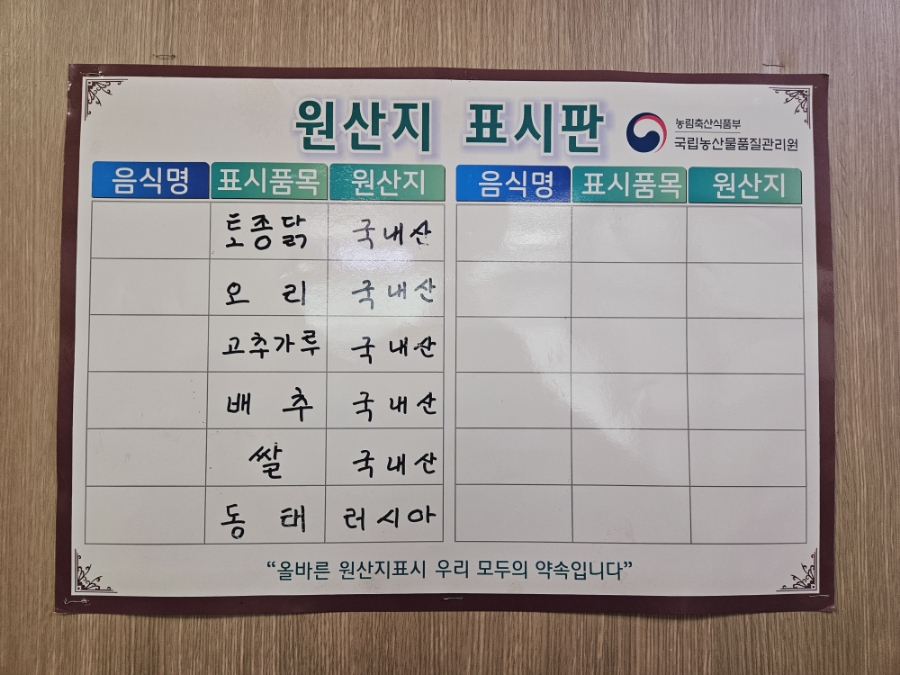 원산지 표시판
농림축산식품부
국립농산물품질관리원
음식명 표시품목 원산지 음식명 표시품목 원산지
토종닭 국내산
오리 국내산
고추가루 국내산
배추 국내산
쌀 국내산
동태 러시아
“올바른 원산지표시 우리 모두의 약속입니다”